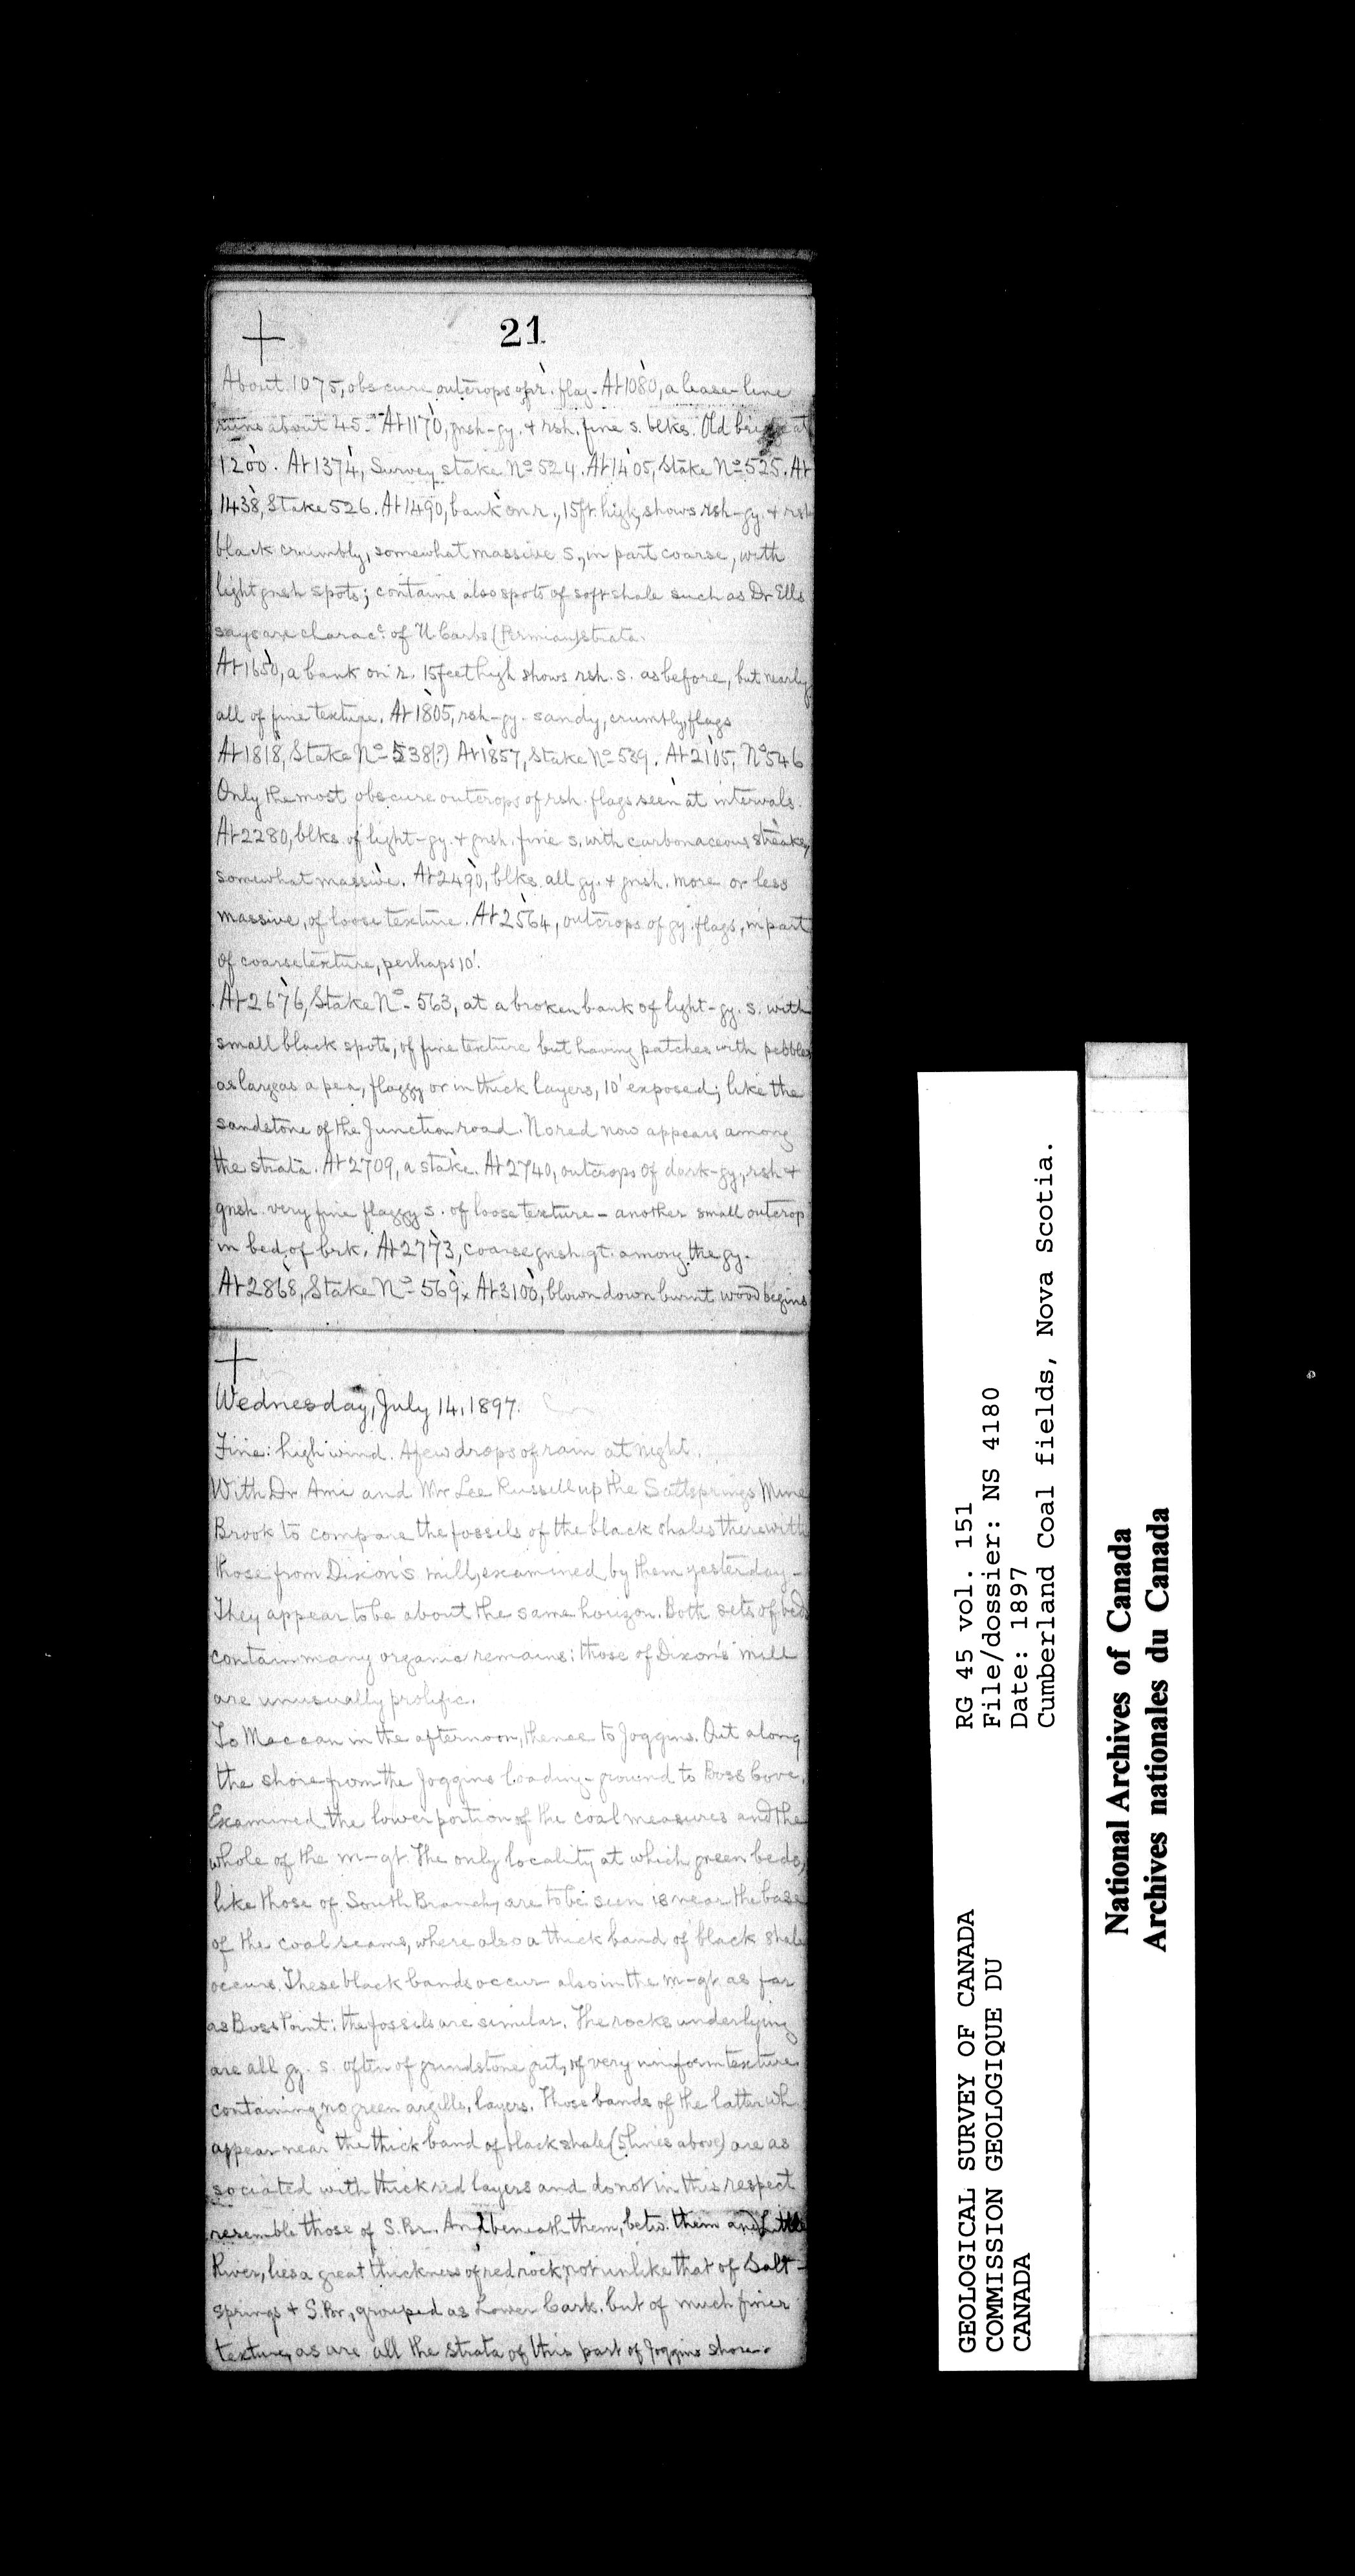 21
About 1075, obscure outcrops of r. flag. At 1080, a lease-line
runs about 45°. At 1170, gnsh-gy. & rsh. fine s. blks. Old at
1200. At 1374, Survey stake No 524. At 1405, Stake No 525. At
1438, Stake 526. At 1490, bank on r., 15 ft. high, shows rsh-gy. & rsh
black crumbly, somewhat massive s., in part coarse, with
light gnsh spots; contains also spots of soft shale such as Dr Ells
says are charac. of U. Carbs (Permian) strata.
At 1650, a bank on r. 15 feet high shows rsh. s. as before, but nearly
all of fine texture. At 1805, rsh-gy. sandy, crumbly, flags
At 1818, Stake No 538(?) At 1857, Stake No 539. At 2105, No 546
Only the most obscure outcrops of rsh. flags seen at intervals.
At 2280, blks. of light-gy. & gnsh. fine s. with carbonaceous streaks,
somewhat massive. At 2490, blks. all gy. & gnsh. more or less
massive, of loose texture. At 2564, outcrops of gy. flags, in part
of coarse texture, perhaps 10'.
At 2676, Stake No 563, at a broken bank of light-gy. s. with
small black spots, of fine texture but having patches with pebbles
as large as a pea, flaggy or in thick layers, 10' exposed; like the
sandstone of the Junction road. No red now appears among
the strata. At 2709, a stake. At 2740, outcrops of dark-gy, rsh &
gnsh. very fine flaggy s. of loose texture - another small outcrop
in bed of brk. At 2773, coarse gnsh gt. among the gy.
At 2868, Stake No 569. At 3100, blown down burnt wood begins
Wednesday, July 14, 1897.
Fine: high wind. A few drops of rain at night.
With Dr Ami and Mr Lee Russell up the Saltsprings Mine
Brook to compare the fossils of the black shales there with
those from Dixon's mill, examined by them yesterday -
They appear to be about the same horizon. Both sets of beds
contain many organic remains: those of Dixon's mill
are unusually prolific.
To Maccan in the afternoon, thence to Joggins. Out along
the shore from the Joggins loading-ground to Boss Cove.
Examined the lower portion of the coal measures and the
whole of the m-gt. The only locality at which green beds,
like those of South Branch, are to be seen is near the base
of the coal seams, where also a thick band of black shale
occurs. These black bands occur also in the m-gt. as far
as Boss Point: the fossils are similar. The rocks underlying
are all gy. s. often of grindstone grit, of very uniform texture
containing no green argills. layers. Those bands of the latter wh.
appear near the thick band of black shale (5 lines above) are as
sociated with thick red layers and do not in this respect
resemble those of S. Br. And beneath them, betw. them and Little
River, lies a great thickness of red rock, not unlike that of Salt-
springs & S. Br., grouped as Lower Carb. but of much finer
texture, as are all the strata of this part of Joggins shore.
RG 45 vol. 151
File/dossier: NS 4180
Date: 1897
Cumberland Coal fields, Nova Scotia.
GEOLOGICAL SURVEY OF CANADA
COMMISSION GEOLOGIQUE DU
CANADA
National Archives of Canada
Archives nationales du Canada